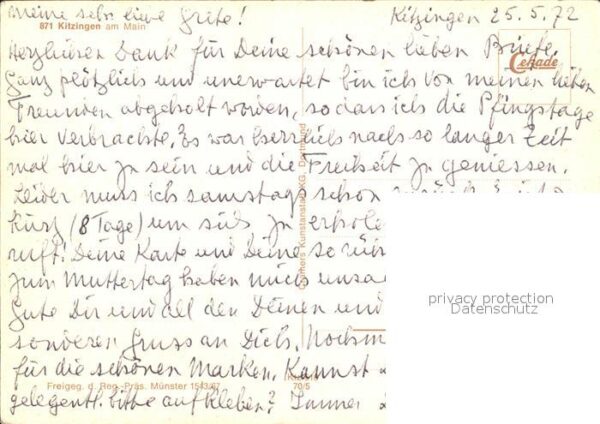 Meine sehr liebe Grete!
Kitzingen 25.5.72
871 Kitzingen am Main
Herzlichen Dank für Deine schönen lieben Briefe.
Cekade
Ganz plötzlich und unerwartet bin ich von meinen lieben
Freunden abgeholt worden, sodass ich die Pfingstage
hier verbrachte. Es war herrlich nach so langer Zeit
mal hier zu sein und die Freiheit zu geniessen.
Leider muss ich samstags schon
kurz (8 Tage) um sich zu
ruft! Deine Karte und Deine so
zum Muttertag haben mich
Gute Dir und all den Deinen und
sonderen Gruss an Dich. Nochm
für die schönen Marken. Kannst
gelegentl. bitte aufkleben? Immer
Cramers Kunstanstalt KG, Dortmund
privacy protection
Datenschutz
Freigeg. d. Reg.-Präs. Münster
70/5